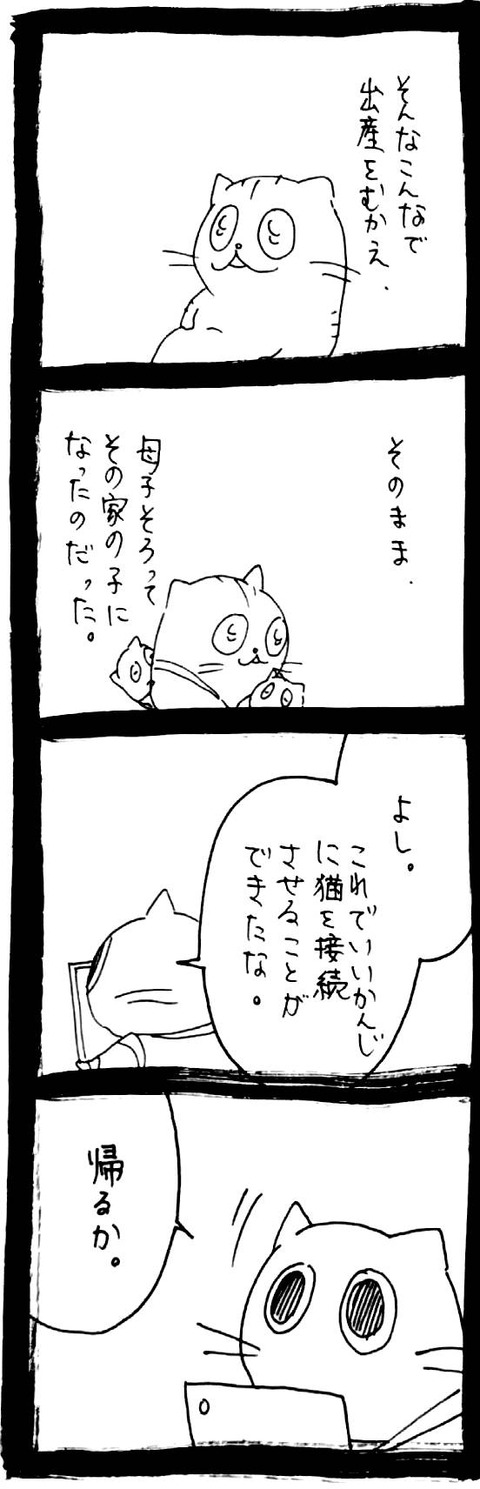 そんなこんなで
出産をむかえ.
そのまま.
母子そろって
その家の子に
なったのだった。
よし。
これでいいかんじ
に猫を接続
させることが
できたな。
帰るか。